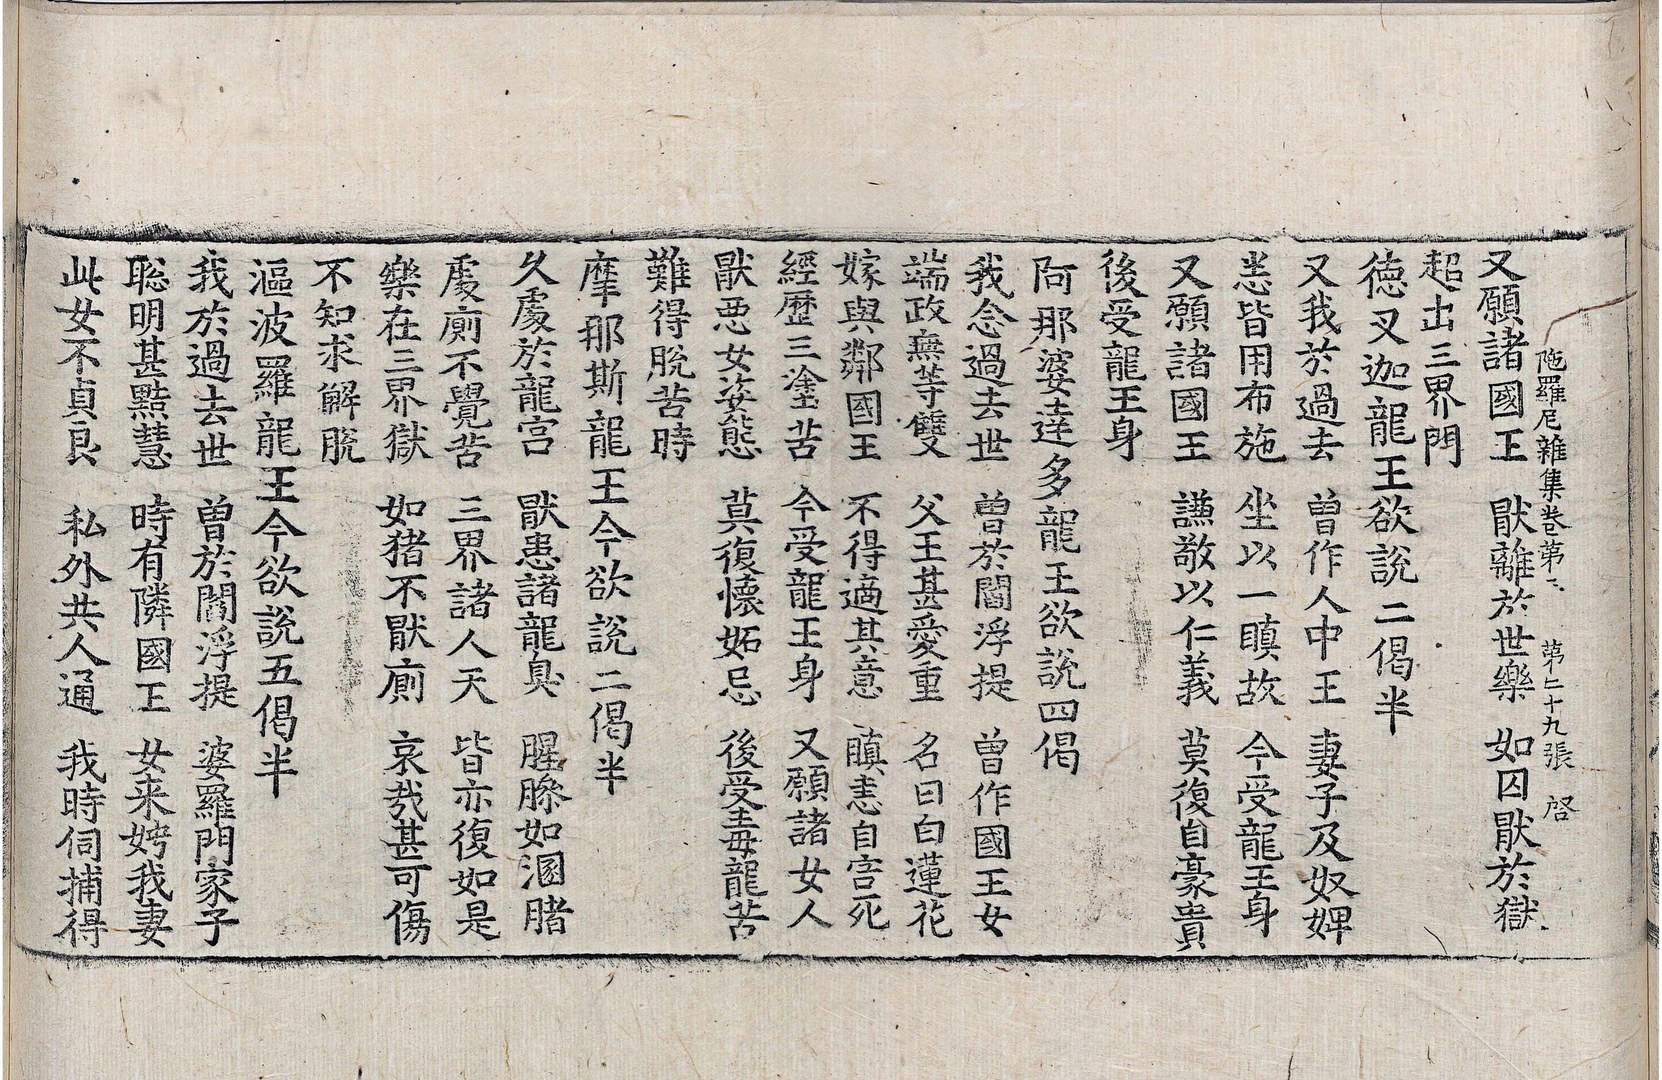 陁羅尼雜集卷第二 第二十九張 啓
又願諸國王 猒離於世樂 如囚猒於獄
超出三界門
德叉迦龍王欲說二偈半
又我於過去 曽作人中王 妻子及奴婢
悉皆用布施 坐以一瞋故 今受龍王身
又願諸國王 謙敬以仁義 莫復自豪貴
後受龍王身
阿那婆達多龍王欲說四偈
我念過去世 曽於閻浮提 曽作國王女
端政無等雙 父王甚愛重 名曰白蓮花
嫁與鄰國王 不得適其意 瞋恚自害死
經歷三塗苦 今受龍王身 又願諸女人
猒惡女姿態 莫復懷妬忌 後受毒龍苦
難得脫苦時
摩那斯龍王今欲說二偈半
久處於龍宮 猒患諸龍臭 腥臊如溷賭
處廁不覺苦 三界諸人天 皆亦復如是
樂在三界獄 如猪不猒廁 哀㢤甚可傷
不知求解脫
漚波羅龍王今欲說五偈半
我於過去世 曽於閻浮提 婆羅門家子
聡明甚黠慧 時有隣國王 女来娉我妻
此女不貞良 私外共人通 我時伺捕得